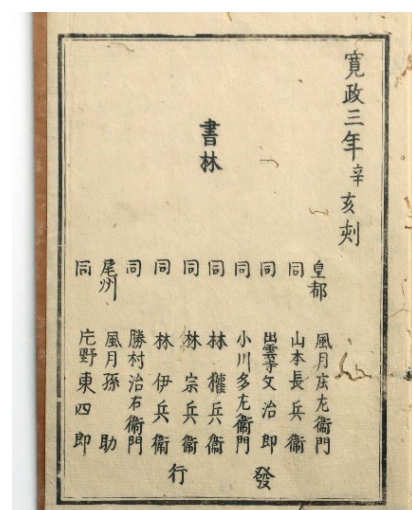 寛政三年辛亥刻
書林
皇都 風月庄左衛門
同 山本長兵衛
同 出雲寺文治郎
同 小川多左衛門
同 林權兵衛
同 林宗兵衛
同 林伊兵衛
同 勝村治右衛門
尾州 風月孫助
同 片野東四郎
發行